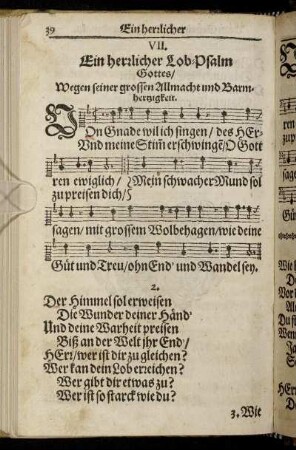 39 Ein herrlicher
VII.
Ein herrlicher Lob-Psalm
Gottes/
Wegen seiner grossen Allmacht und Barm-
hertzigkeit.
VOn Gnade wil ich singen / des HEr-
Und meine Stim̃ erschwingẽ / O Gott
ren ewiglich / Mein schwacher Mund sol
zu preisen dich /
sagen / mit grossem Wolbehagen / wie deine
Güt und Treu / ohn End' und Wandel sey.
2.
Der Himmel sol erweisen
Die Wunder deiner Händ'
Und deine Warheit preisen
Biß an der Welt jhr End /
HErr / wer ist dir zu gleichen?
Wer kan dein Lob erreichen?
Wer gibt dir etwas zu?
Wer ist so starck wie du?
3. Wie